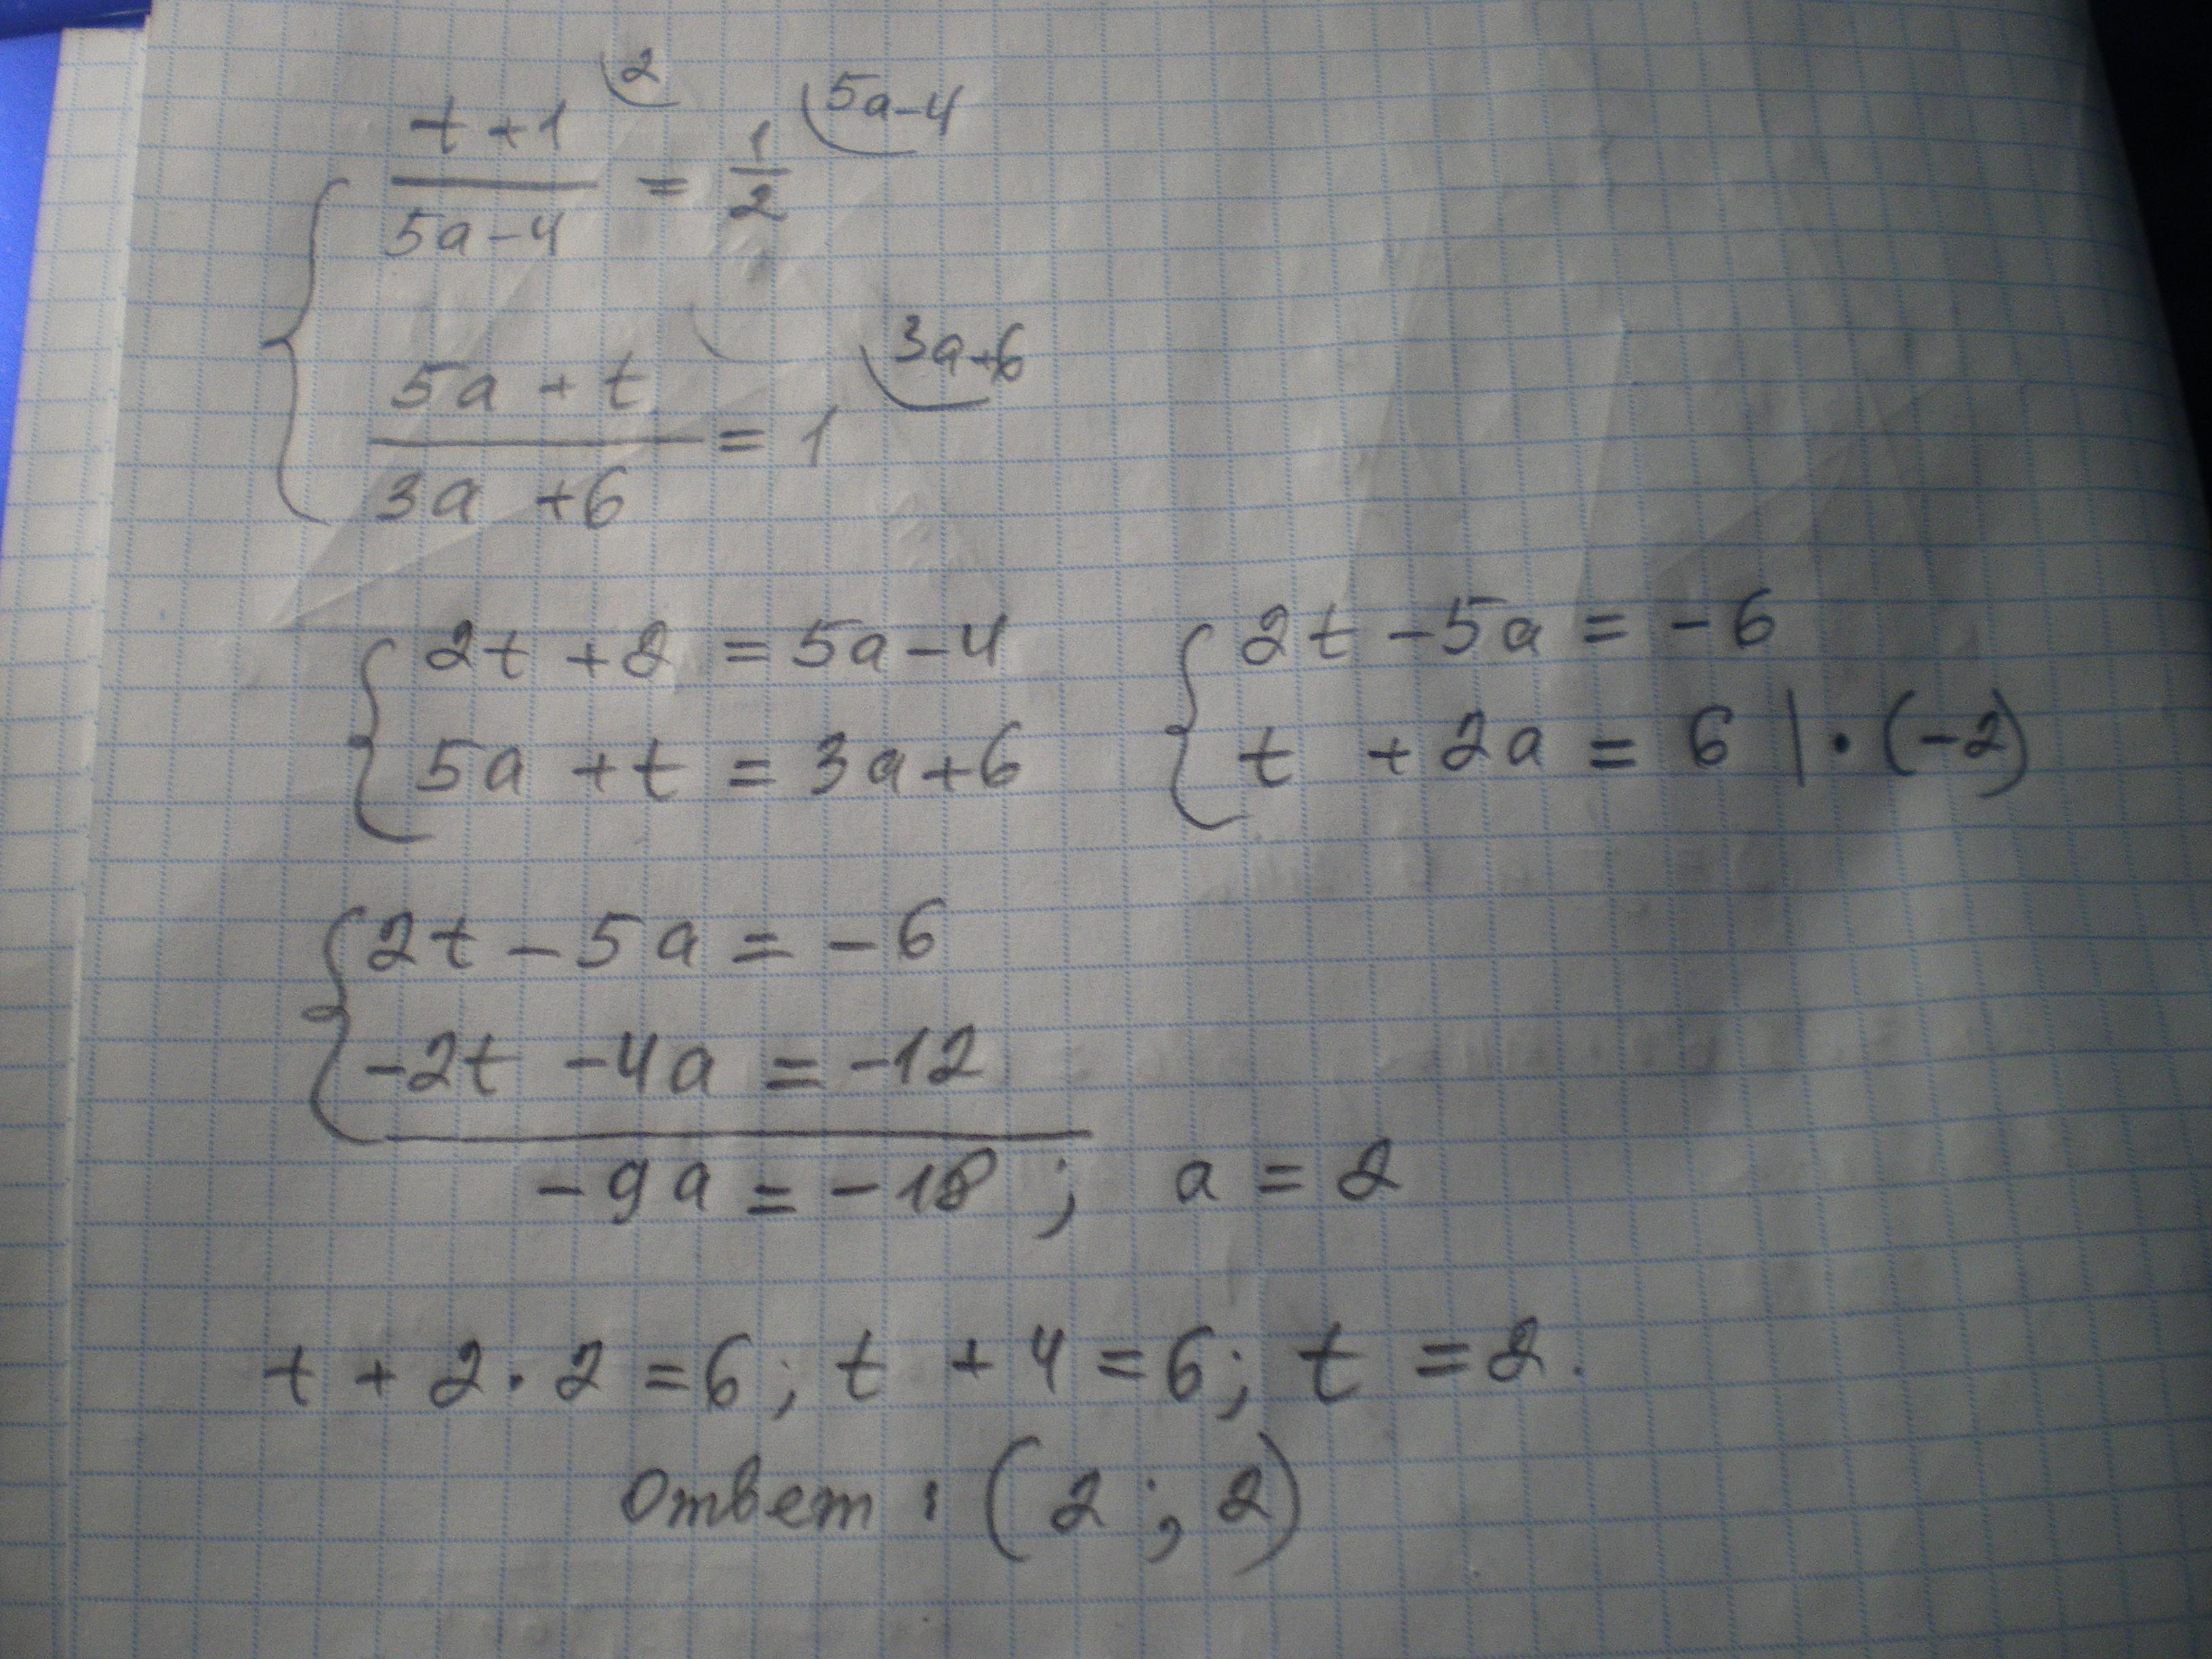 t+1 (2 / 5a-4 = 1/2 (5a-4
5a+t / 3a+6 = 1 (3a+6
2t+2=5a-4 2t-5a=-6
5a+t=3a+6 t+2a=6 | · (-2)
2t-5a=-6
-2t-4a=-12
-9a=-18; a=2
t+2·2=6; t+4=6; t=2.
Ответ: (2; 2)